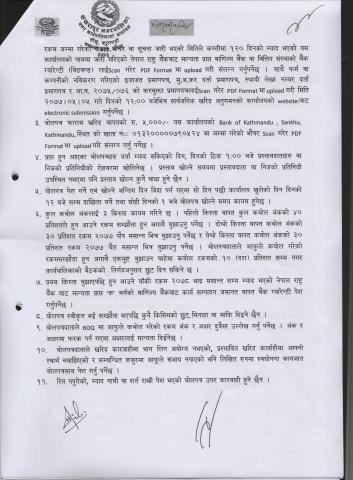 शंकरापुर नगरपालिका
रकम जम्मा गरेको सक्कल भौचर वा सूचना जारी भएको मितिले कम्तीमा १२० दिनको म्याद भएको यस
कार्यालयको नाममा जारी गरिएको नेपाल राष्ट्र बैंकबाट मान्यता प्राप्त वाणिज्य बैंक वा वित्तिय संस्थाको बैंक
ग्यारेन्टी (बिडबण्ड) लाई Scan गरेर PDF Format मा upload गरी संलग्न गर्नुपर्नेछ । साथै फर्म वा
कम्पनीको नविकरण गरिएको इजाजत प्रमाणपत्र, मु.अ.कर दर्ता प्रमाणपत्र, स्थायी लेखा नम्बर दर्ता
प्रमाणपत्र र आ.व. २०७५/०७६ को करचुक्ता प्रमाणपत्रलाई Scan गरेर PDF Format मा upload गरी मिति
गते दिनको १२:०० बजेभित्र सार्वजनिक खरिद अनुगमनको कार्यालयको website बाट
electronic submission गर्नुपर्नेछ ।
३. बोलपत्र फाराम खरिद बापतको रु. ३,०००/- यस कार्यालयको Bank of Kathmandu , Sankhu,
Kathmandu स्थित को खाता नं. मा जम्मा गरेको भौचर Scan गरेर PDF
Format मा upload गरी संलग्न गर्नु पर्नेछ ।
४. प्राप्त हुन आएका बोलपत्रहरु दर्ता म्याद सकिएको दिन, दिनको ठिक १:०० बजे प्रस्तावदाताहरु वा
निजको प्रतिनिधीको रोहवरमा खोलिनेछ । प्रस्ताव खोल्ने समयमा प्रस्तावदाता वा निजको प्रतिनिधी
उपस्थित नभएमा पनि प्रस्ताव खोल्न कुनै बाधा हुने छैन ।
५. बोलपत्र पेश गर्ने एवं खोल्ने अन्तिम दिन विदा पर्न गएमा सो दिन पछी कार्यालय खुलेको दिन दिनको
१२ बजे सम्म दाखिला गर्ने तथा सोही दिनको १ बजे बोलपत्र खोल्ने समय कायम हुनेछ ।
६. कुल कबोल अंकलाई ३ किस्ता कायम गरिने छ । पहिलो किस्ता बापत कुल कबोल अंकको ४०
प्रतिशतले हुन आउने रकम सम्झौता हुन अगावै बुझाउनु पर्नेछ । दोश्रो किस्ता बापत कबोल अंकको
३० प्रतिशत रकम २०७७ पौष मसान्त भित्र बुझाउनु पर्नेछ र तेश्रो किस्ता बापत कबोल अंकको ३०
प्रतिशत रकम २०७७ चैत मसान्त भित्र बुझाउनु पर्नेछ । बोलपत्रदाताले आफूले कबोल गरेको
रकमसम्झौता हुन अगावै एकमुष्ट बुझाउन चाहेमा कबोल रकमको १० (दश) प्रतिशत सम्म नगर
कार्यपालिकाको बैठकको निर्णयअनुसार छुट दिन सकिने छ ।
७. प्रथम किस्ता बुझाएपछि हुन आउने बाँकी रकम २०७८ भाद्र मसान्त सम्म म्याद भएको नेपाल राष्ट्र
बैंक बाट मान्यता प्राप्त 'क' बर्गको बाणिज्य बैंकबाट कार्य सम्पादन जमानत बापत बैंक ग्यारेन्टी पेश
गर्नुपर्नेछ ।
८. बोलपत्र स्वीकृत भई सम्झौता भएपछि कुनै किसिमको छुट, मिनाहा वा माफि दिइने छैन ।
९. बोलपत्रदाताले BOQ मा आफूले कबोल गरेको रकम अंक र अक्षर दुवैमा उल्लेख गर्नु पर्नेछ । अंक र
अक्षरमा फरक पर्न गएमा अक्षरलाई मान्यता दिईनेछ ।
१०. बोलपत्रदाताले खरिद कारबाहीमा भाग लिन अयोग्य नभएको, प्रस्तावित खरिद कार्वाहीमा आफ्नो
स्वार्थ नबाझिएको र सम्बन्धित कसुरमा आफूले सजाय नपाएको भनि लिखित रुपमा स्वघोषणा कागजात
बोलपत्रसाथ पेश गर्नु पर्नेछ ।
११. रित नपुगेको, म्याद नाघी वा शर्त राखी पेश भएको बोलपत्र उपर कारबाही हुने छैन ।